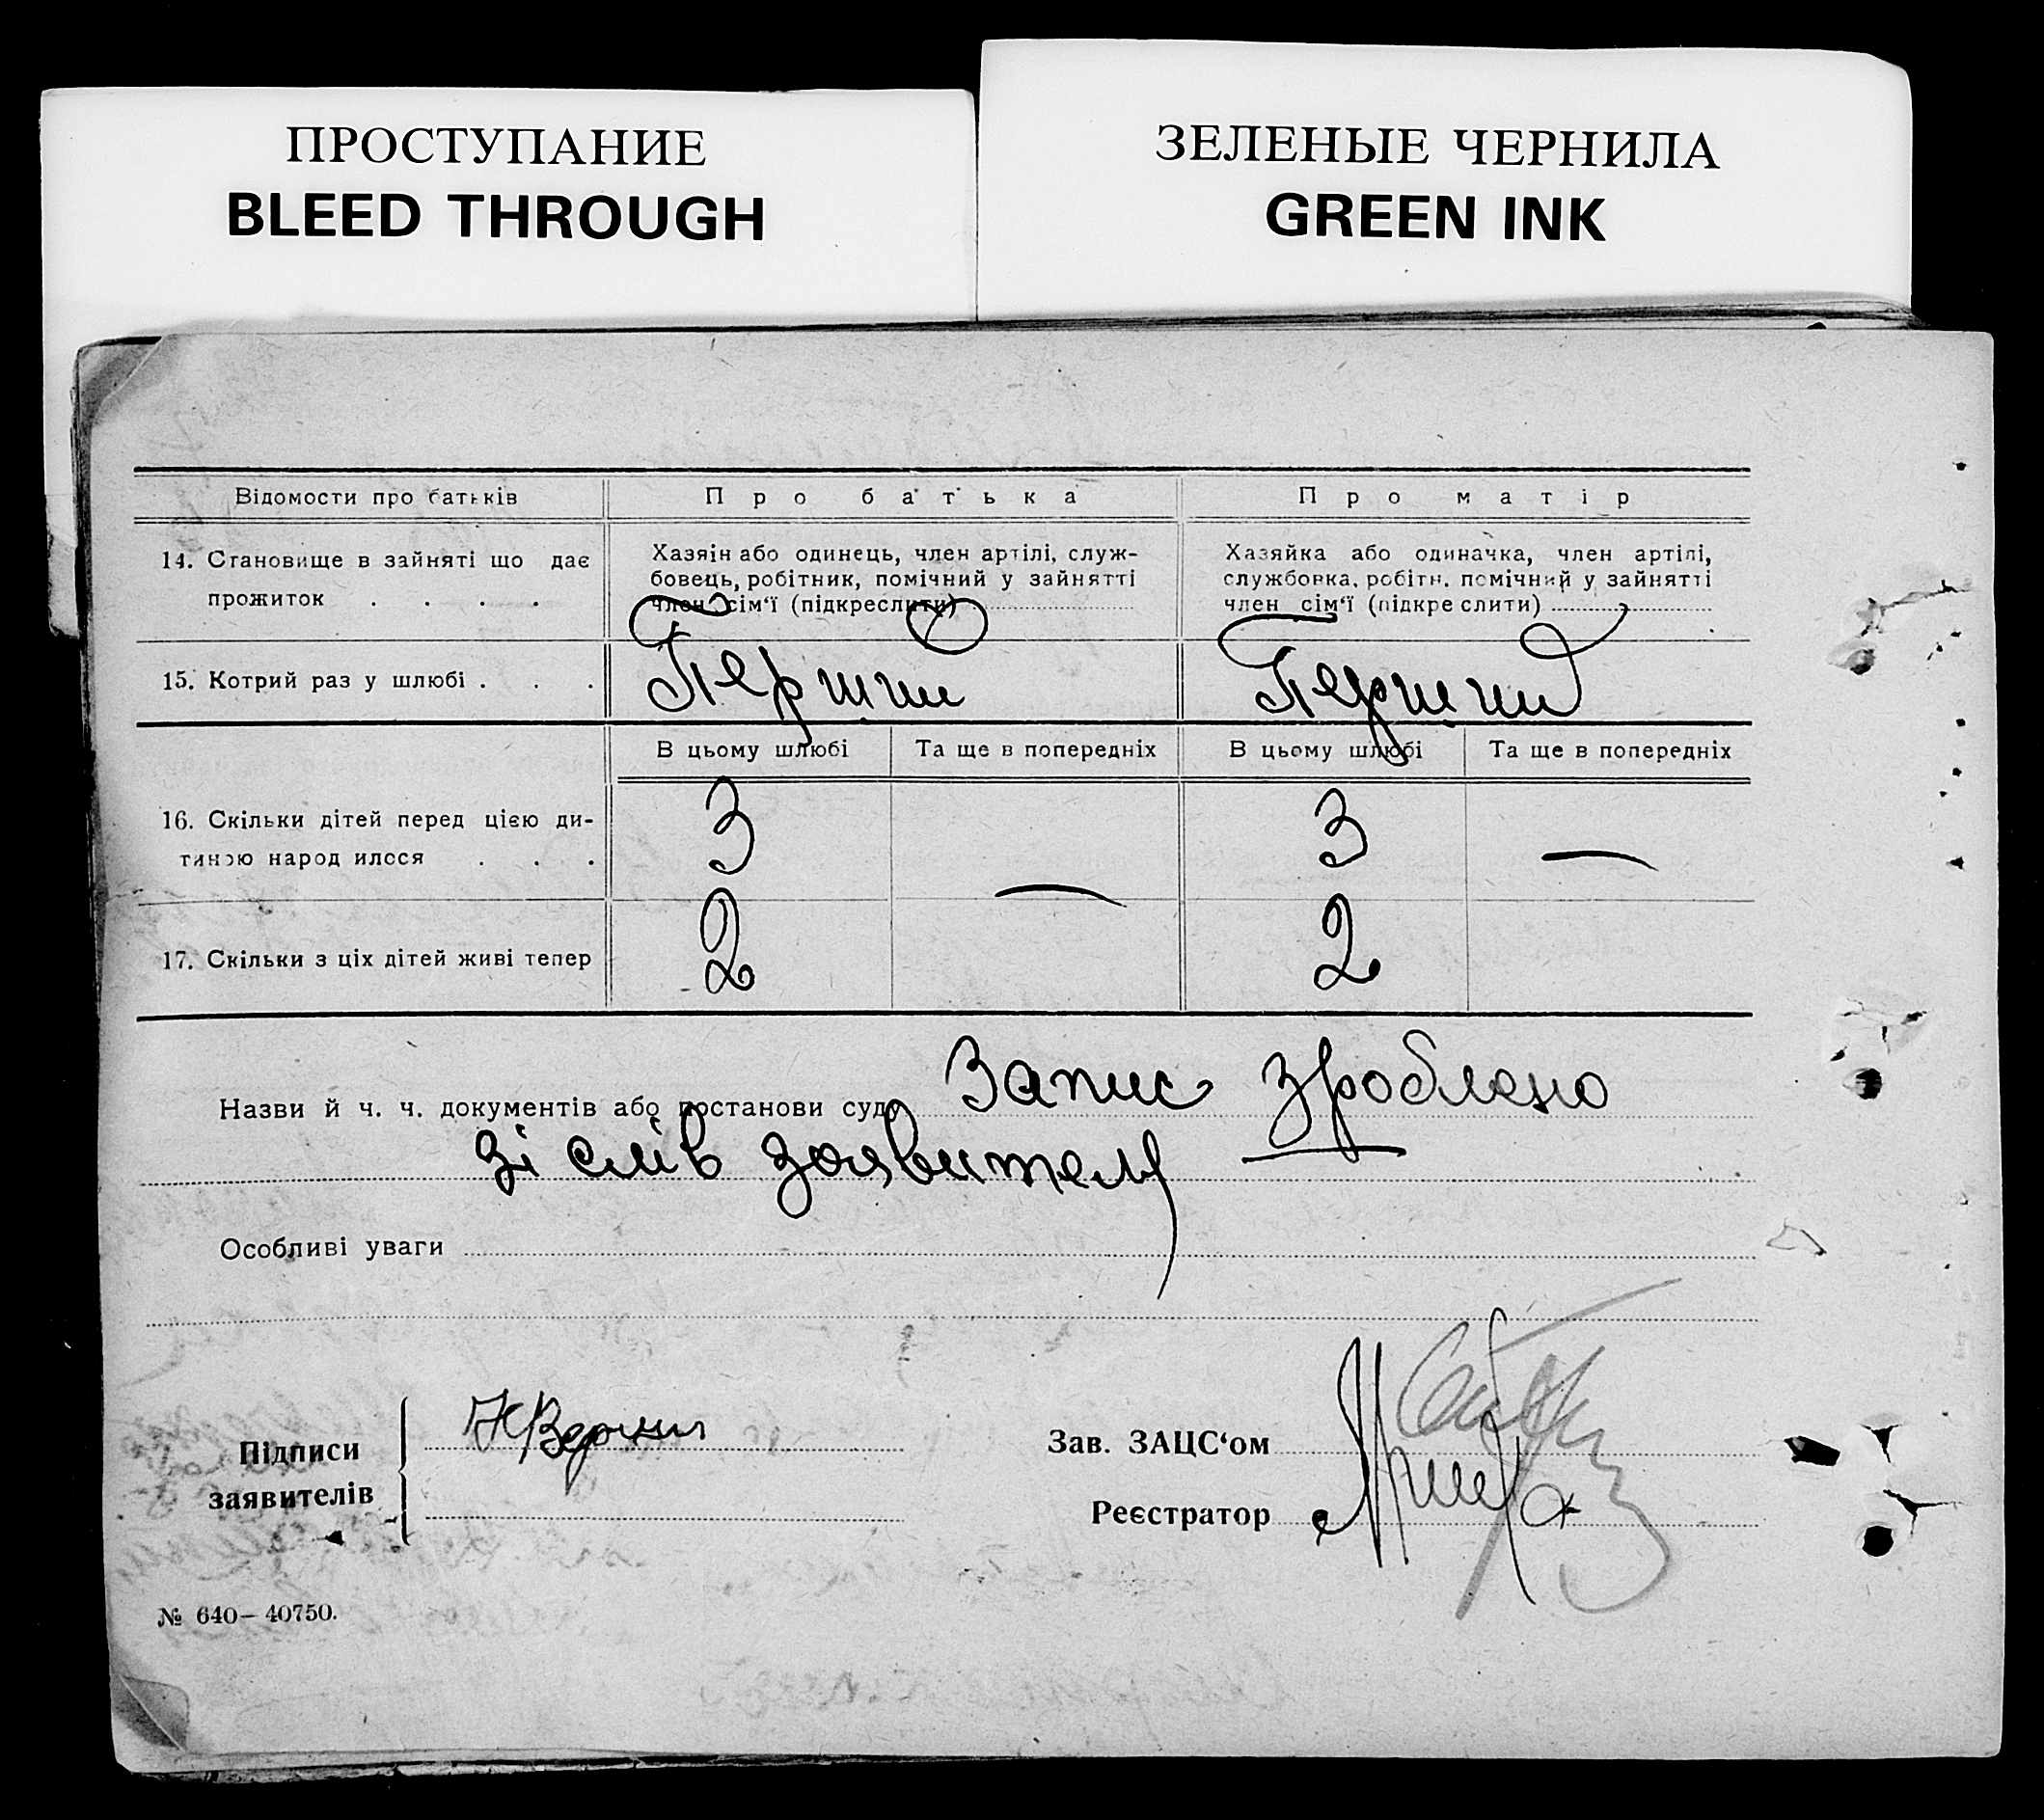 ПРОСТУПАНИЕ
BLEED THROUGH
ЗЕЛЕНЫЕ ЧЕРНИЛА
GREEN INK
Відомости про батьків
Про батька
Про матір
14. Становище в зайняті що дає
прожиток . . . .
Хазяїн або одинець, член артілі, служ-
бовець, робітник, помічний у зайнятті
член сім‘ї (підкреслити)
Хазяйка або одиначка, член артілі,
службовка, робітн. помічний у зайнятті
член сім‘ї (підкреслити)
15. Котрий раз у шлюбі . . .
Перший
Перший
В цьому шлюбі
Та ще в попередніх
В цьому шлюбі
Та ще в попередніх
16. Скільки дітей перед цією ди-
тиною народилося . . .
3
—
3
—
17. Скільки з ціх дітей живі тепер
2
2
Назви й ч. ч. документів або постанови суду Запис зроблено
зі слів заявителя
Особливі уваги
Підписи
заявителів
Зав. ЗАЦС‘ом
Реєстратор
№ 640—40750.